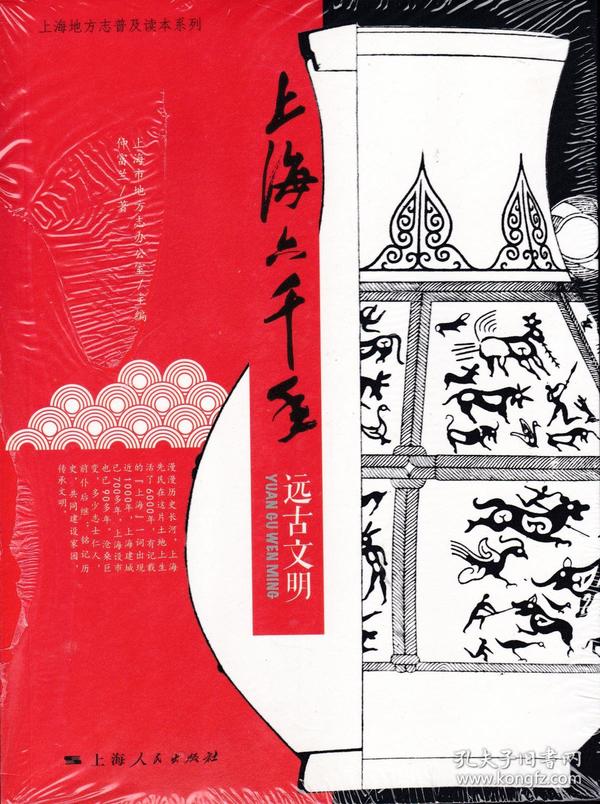 上海地方志普及读本系列
上海市地方志办公室/主编
仲富兰/著
上海六千年
远古文明
YUAN GU WEN MING
漫漫历史长河，上海
先民在这片土地上生
活了6000年，有记载
的“上海”一词出现
近1000年，上海建城
已700多年，上海设市
也已90多年，沧桑巨
变，多少志士仁人，
前仆后继，铭记历
史，共同建设家园，
传承文明。
上海人民出版社
孔夫子旧书网
www.kongfz.com